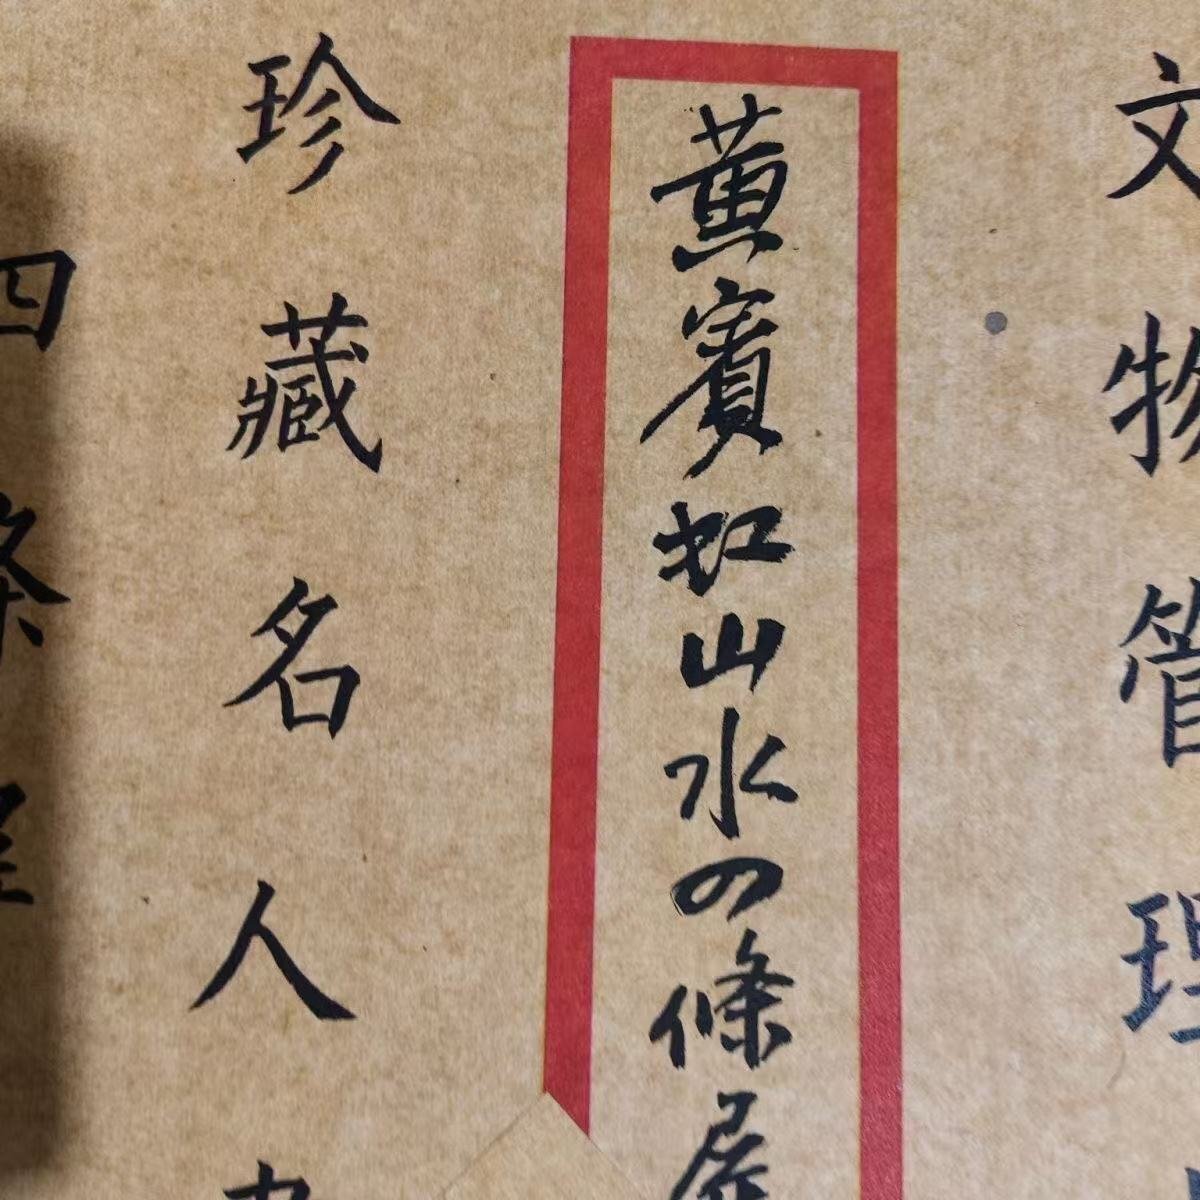 文物管理
黃賓虹山水四條屏
珍藏名人
四條屏